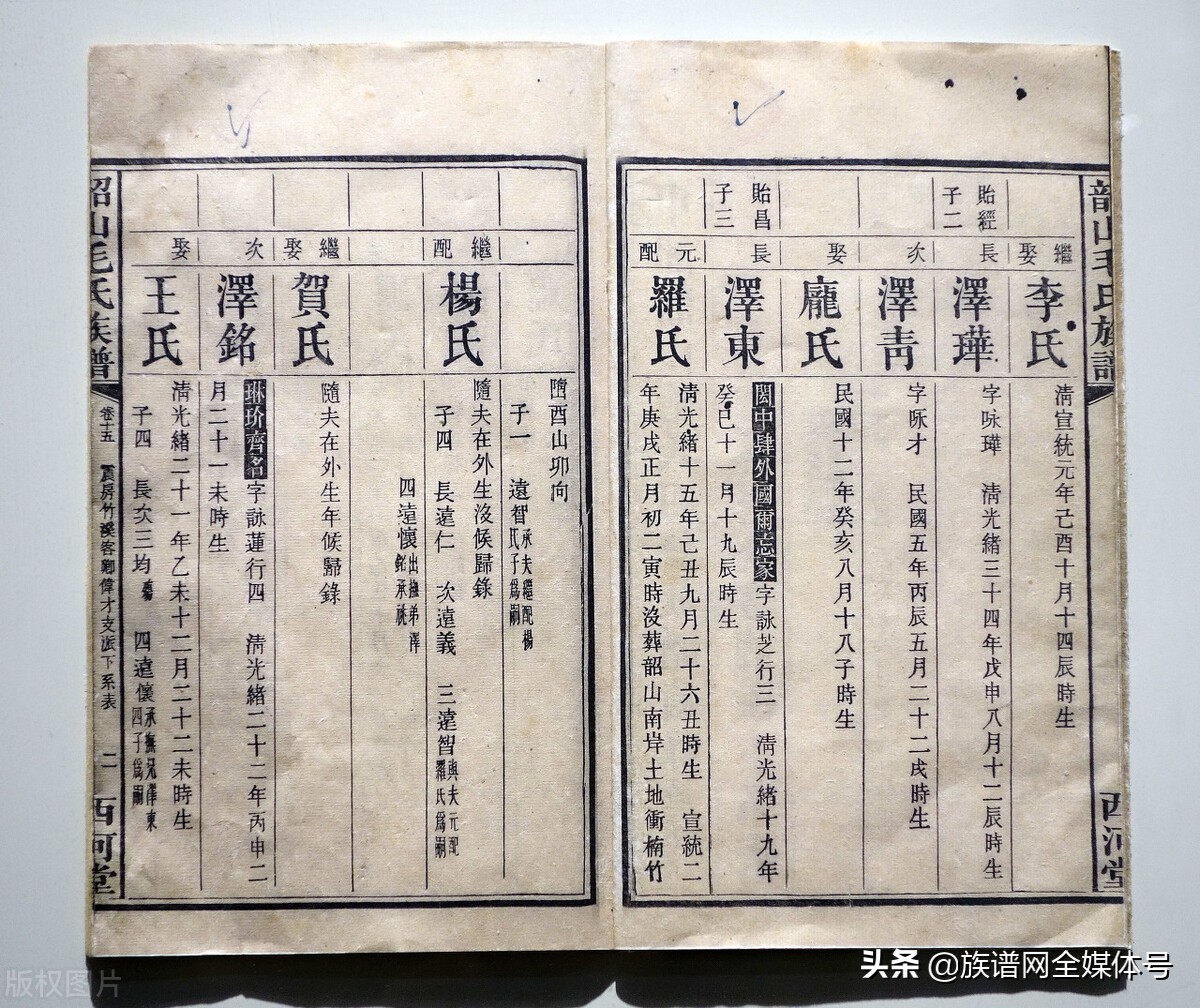 韶山毛氏族譜
西河堂
繼娶
李氏
清宣統元年己酉十月十四辰時生
貽經
子二
長
澤琿
字咏琿 清光緒三十四年戊申八月十二辰時生
次
澤青
字咏才 民國五年丙辰五月二十二戌時生
娶
龐氏
民國十二年癸亥八月十八子時生
貽昌
子三
長
澤東
閎中肆外國爾忘家字詠芝行三 清光緒十九年
癸巳十一月十九辰時生
元配
羅氏
清光緒十五年己丑九月二十六丑時生 宣統二
年庚戌正月初二寅時沒葬韶山南岸土地衝楠竹
酉山卯向
子一 遠智承夫繼配楊
氏子爲嗣
繼配
楊氏
隨夫在外生沒候歸錄
子四 長遠仁 次遠義 三遠智與夫元配
羅氏爲嗣
四遠懷出撫弟澤
銘承祧
繼娶
賀氏
隨夫在外生年候歸錄
次
澤銘
琳玠齊名字詠蓮行四 清光緒二十二年丙申二
月二十一未時生
娶
王氏
清光緒二十一年乙未十二月二十二未時生
子四 長次三均殤 四遠懷承撫兄澤東
四子爲嗣
韶山毛氏族譜
卷十五 震房竹溪客卿偉才支派下系表
二
西河堂
版权图片
头条 @族谱网全媒体号